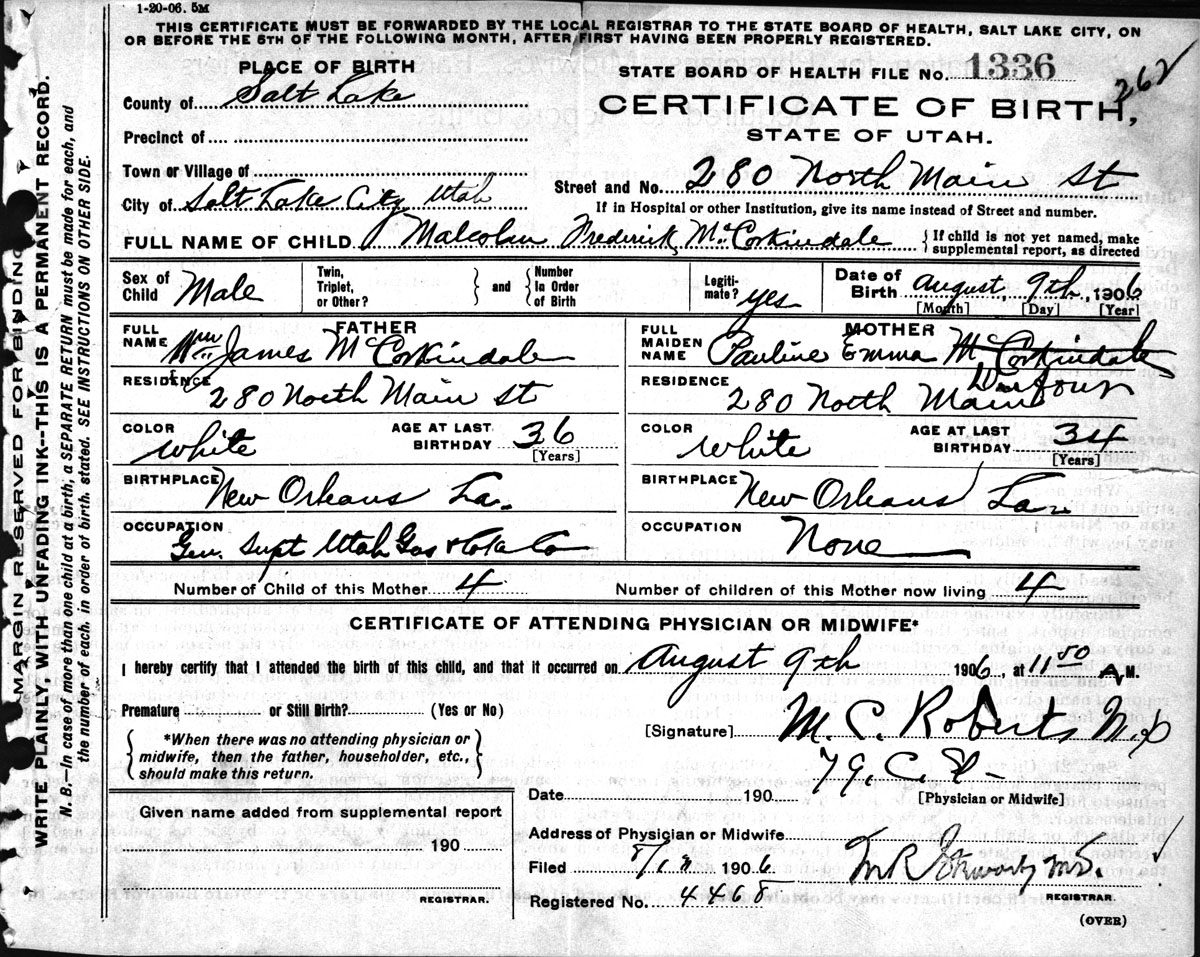 1-20-06. 5M
THIS CERTIFICATE MUST BE FORWARDED BY THE LOCAL REGISTRAR TO THE STATE BOARD OF HEALTH, SALT LAKE CITY, ON
OR BEFORE THE 5TH OF THE FOLLOWING MONTH, AFTER FIRST HAVING BEEN PROPERLY REGISTERED.
PLACE OF BIRTH
STATE BOARD OF HEALTH FILE No. 1336
262
County of Salt Lake
CERTIFICATE OF BIRTH,
Precinct of
STATE OF UTAH.
Town or Village of
Street and No. 280 North Main St
City of Salt Lake City Utah
If in Hospital or other Institution, give its name instead of Street and number.
FULL NAME OF CHILD Malcolm Frederick McCorkindale { If child is not yet named, make supplemental report, as directed
Sex of Child Male
Twin, Triplet, or Other? } and { Number In Order of Birth
Legitimate? yes
Date of Birth August, 9th, 1906
[Month] [Day] [Year]
FATHER
FULL NAME Wm James McCorkindale
RESIDENCE 280 North Main St
COLOR White
AGE AT LAST BIRTHDAY 36
[Years]
BIRTHPLACE New Orleans La.
OCCUPATION Gen. Supt Utah Gas & Coke Co
MOTHER
FULL MAIDEN NAME Pauline Emma McCorkindale
RESIDENCE 280 North Main
COLOR White
AGE AT LAST BIRTHDAY 34
[Years]
BIRTHPLACE New Orleans La.
OCCUPATION None
Number of Child of this Mother 4
Number of children of this Mother now living 4
CERTIFICATE OF ATTENDING PHYSICIAN OR MIDWIFE*
I hereby certify that I attended the birth of this child, and that it occurred on August 9th 1906, at 11 50 A M.
Premature or Still Birth? (Yes or No)
[Signature] M. C. Roberts M.D
{ *When there was no attending physician or
midwife, then the father, householder, etc.,
should make this return. }
Date 190
[Physician or Midwife]
Given name added from supplemental report
190
REGISTRAR.
Address of Physician or Midwife
Filed 8/18 1906
Registered No. 4468
REGISTRAR.
(OVER)
MARGIN RESERVED FOR BINDING
WRITE PLAINLY, WITH UNFADING INK--THIS IS A PERMANENT RECORD.
N. B.--In case of more than one child at a birth, a SEPARATE RETURN must be made for each, and
the number of each, in order of birth, stated. SEE INSTRUCTIONS ON OTHER SIDE.